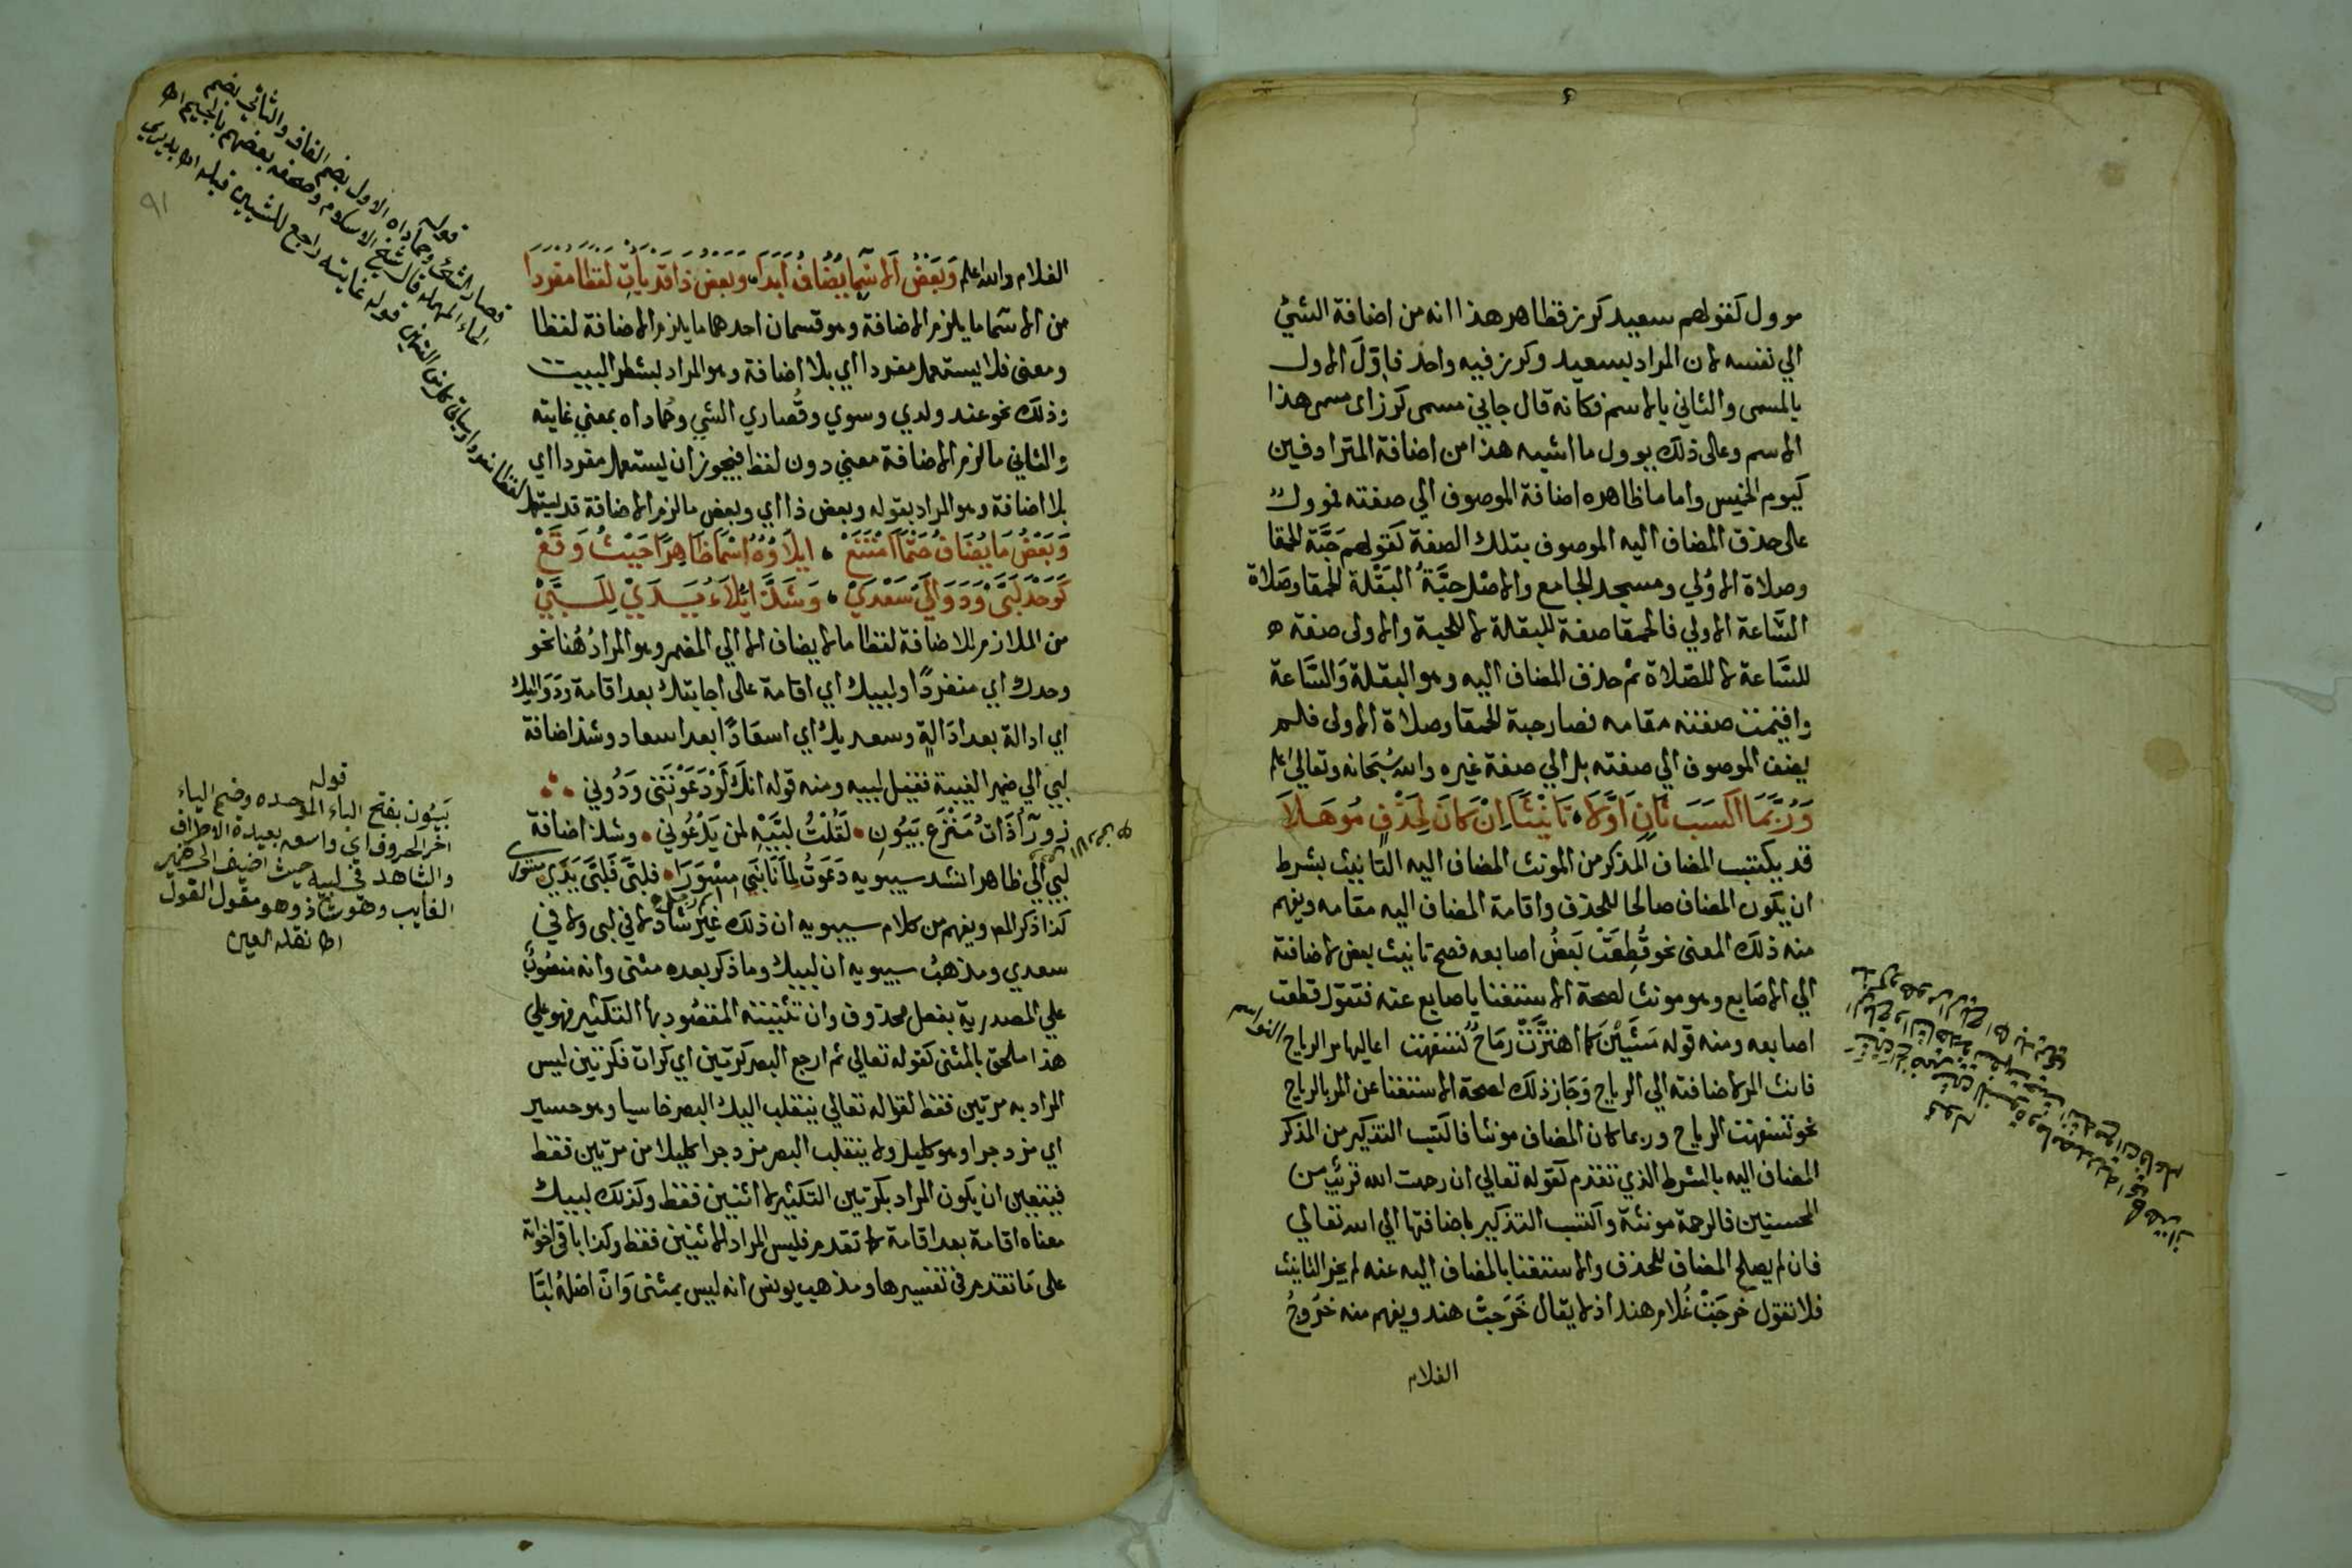 موول كقولهم سعيد كرز فظاهر هذا انه من اضافة الشئ
الي نفسه لان المراد بسعيد وكرز فيه واحد فاول الاول
بالمسمى والثاني بالاسم فكانه قال جاني مسمى كرز اى مسمى هذا
الاسم وعلى ذلك يوول ما اشبه هذا من اضافة المترادفين
كيوم الخميس واما ما ظاهره اضافة الموصوف الي صفته فموول
على حذف المضاف اليه الموصوف بتلك الصفة كقولهم حبة الحمقا
وصلاة الاولي ومسجد الجامع والاصل حبة البقلة الحمقا وصلاة
الساعة الاولي فالحمقا صفة للبقلة لا للحبة والاولى صفة
للساعة لا للصلاة ثم حذف المضاف اليه وهو البقلة والساعة
واقيمت صفته مقامه فصار حبة الحمقا وصلاة الاولى فلم
يضف الموصوف الي صفته بل الي صفة غيره والله سبحانه وتعالى اعلم
وَرُبَّمَا اكسَبَ ثَانٍ اَوَّلَا ، تَانِيْثًا اِنْ كَانَ لِحَذْفٍ مُوهَلَا
قد يكتسب المضاف المذكر من المونث المضاف اليه التانيث بشرط
ان يكون المضاف صالحا للحذف واقامة المضاف اليه مقامه ويفهم
منه ذلك المعنى نحو قُطِعَتْ بَعضُ اصابعه فصح تانيث بعض لاضافته
الي الاصابع وهو مونث لصحة الاستغنا باصابع عنه فتقول قطعت
اصابعه ومنه قوله مَشَيْنَ كما اهتَزَّتْ رِمَاحٌ تسفهت اعاليها مر الرياح النواسم
فانث المر لاضافته الي الرياح وَجَاز ذلك لصحة الاستغنا عن المر بالرياح
نحو تسفهت الرياح وربما كان المضاف مونثا فاكتسب التذكير من المذكر
المضاف اليه بالشرط الذي تقدم كقوله تعالي ان رحمت الله قريب من
المحسنين فالرحمة مونثة واكتسب التذكير باضافتها الي الله تعالي
فان لم يصلح المضاف للحذف والاستغنا بالمضاف اليه عنه لم يجز التانيث
فلا تقول خرجَتْ غُلام هند اذ لا يقال خَرَجت هند ويفهم منه خروجُ
الغلام
الغلام والله اعلم وَبَعْضُ الاسْمَا يُضَافُ اَبَدَا ، وَبَعْضُ ذَا قَدْ يَاتِ لَفْظًا مُفْرَدَا
من الاسما ما يلزم الاضافة وهو قسمان احدهما ما يلزم الاضافة لفظا
ومعنى فلا يستعمل مفردا اي بلا اضافة وهو المراد بشطر البيت
وذلك نحو عند ولدي وسوي وقُصاري الشي وحُماداه بمعني غايته
والثاني مالزم الاضافة معني دون لفظ فيجوز ان يستعمل مفردا اي
بلا اضافة وهو المراد بقوله وبعض ذا اي وبعض مالزم الاضافة قد يستعمل
وَبَعْضُ مَا يُضَافُ حَتْمًا امْتَنَعْ ، ايلَاوُهُ اسْمًا ظَاهِرًا حَيْثُ وَقَعْ
كَوَحْدَ لَبَّيْ وَدَوَالَيْ سَعْدَيْ ، وَشَذَّ ايْلَاءُ يَدَيْ لِلَبَّيْ
من الملازم للاضافة لفظا مالا يضاف الا الي المضمر وهو المرادُ هُنا نحو
وحدك اي منفردًا ولبيك اي اقامة على اجابتك بعد اقامة ودَوَاليك
اي ادالة بعد ادَالةٍ وسعديك اي اسعَادًا بعد اسعاد وشذ اضافة
لبي الي ضمير الغيبة فقيل لبيه ومنه قوله انك لَوْ دَعَوْتَنى وَدُوني
زورآُ ذَاتُ مَنْزعٍ بَيُونِ لَقُلْتُ لبَّيْهِ لمن يَدْعُوني وشذ اضافة
لبي الي ظاهر انشد سيبويه دَعَوتُ لِمَا نَابَني مِسْوَرَا فلبى فَلَبَّي يَدَي مسور
كذا ذكر المص ويفهم من كلام سيبويه ان ذلك غير شاذ لا في لبى ولا في
سعدي ومذهبُ سيبويه ان لبيك وما ذكر بعده مثنى وانه منصُوبٌ
علي المصدرية بفعل محذوف وان تثنيته المقصُود بها التكثير فهو علي
هذا ملحق بالمثنى كقوله تعالي ثم ارجع البصر كرتين اي كرات فكرتين ليس
المراد به مرتين فقط لقوله تعالي ينقلب اليك البصر خاسيا وهو حسير
اي مزدجرا وهو كليل ولا ينقلب البصر مزدجرا كليلا من مرتين فقط
فيتعين ان يكون المراد بكرتين التكثير لا اثنين فقط وكذلك لبيك
معناه اقامة بعد اقامة كما تقدم فليس المراد الاثنين فقط وكذا باقى اخواته
على مَا تقدم في تفسيرها ومذهب يونس انه ليس بمثنى وَانّ اصلهُ لبَّا
لفظا مفردا
قوله
قصارى الشئ وحماداه الاول بضم القاف والثاني بضم
الحاء المهمله قال شيخ الاسلام وصحفه بعضهم بالجيم اه
قوله غايته راجع للشيين قبله اه
قوله
بَيُون بفتح الباء الموحده وضم الياء
اخر الحروف اي واسعه بعيدة الاطراف
والشاهد في لبيه حيث اضيف الى ضمير
الغايب وهو شاذ وهو مقول القول
اه نقله العيني
قوله